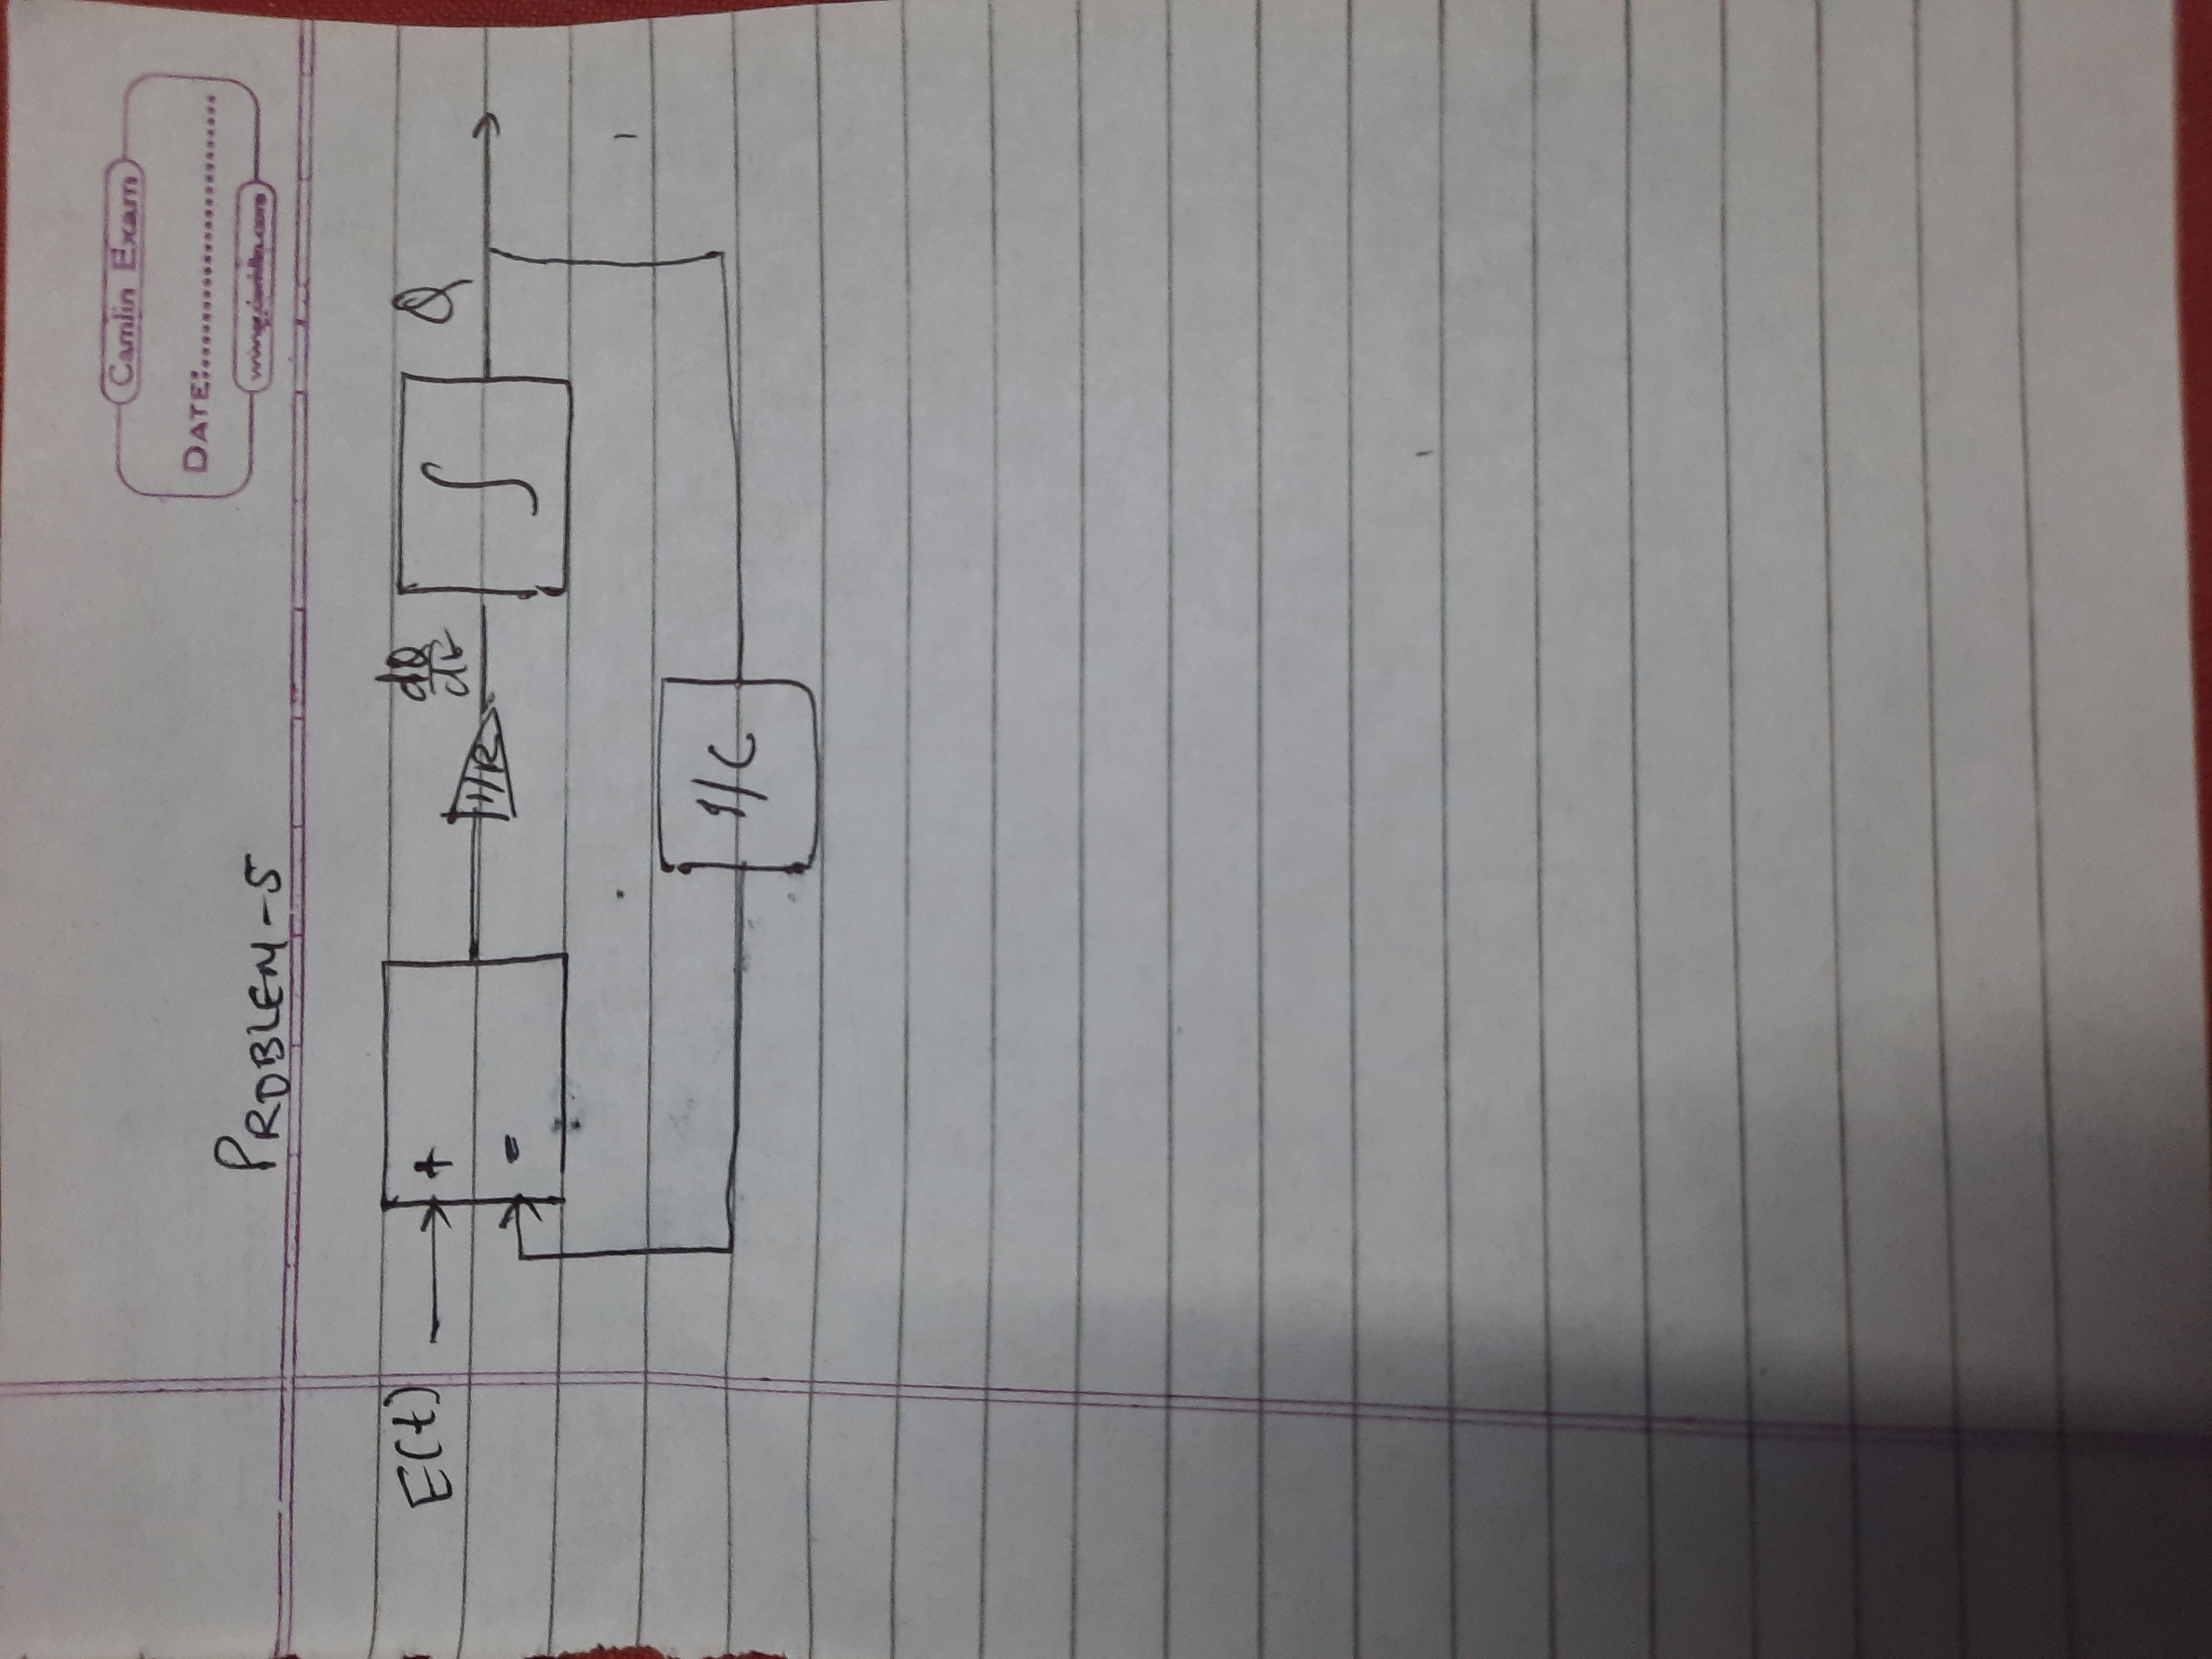 Camlin Exam
DATE:
www.camlin.com
PROBLEM-5
E(t)
+
-
1/R
dQ
dt
∫
Q
1/C